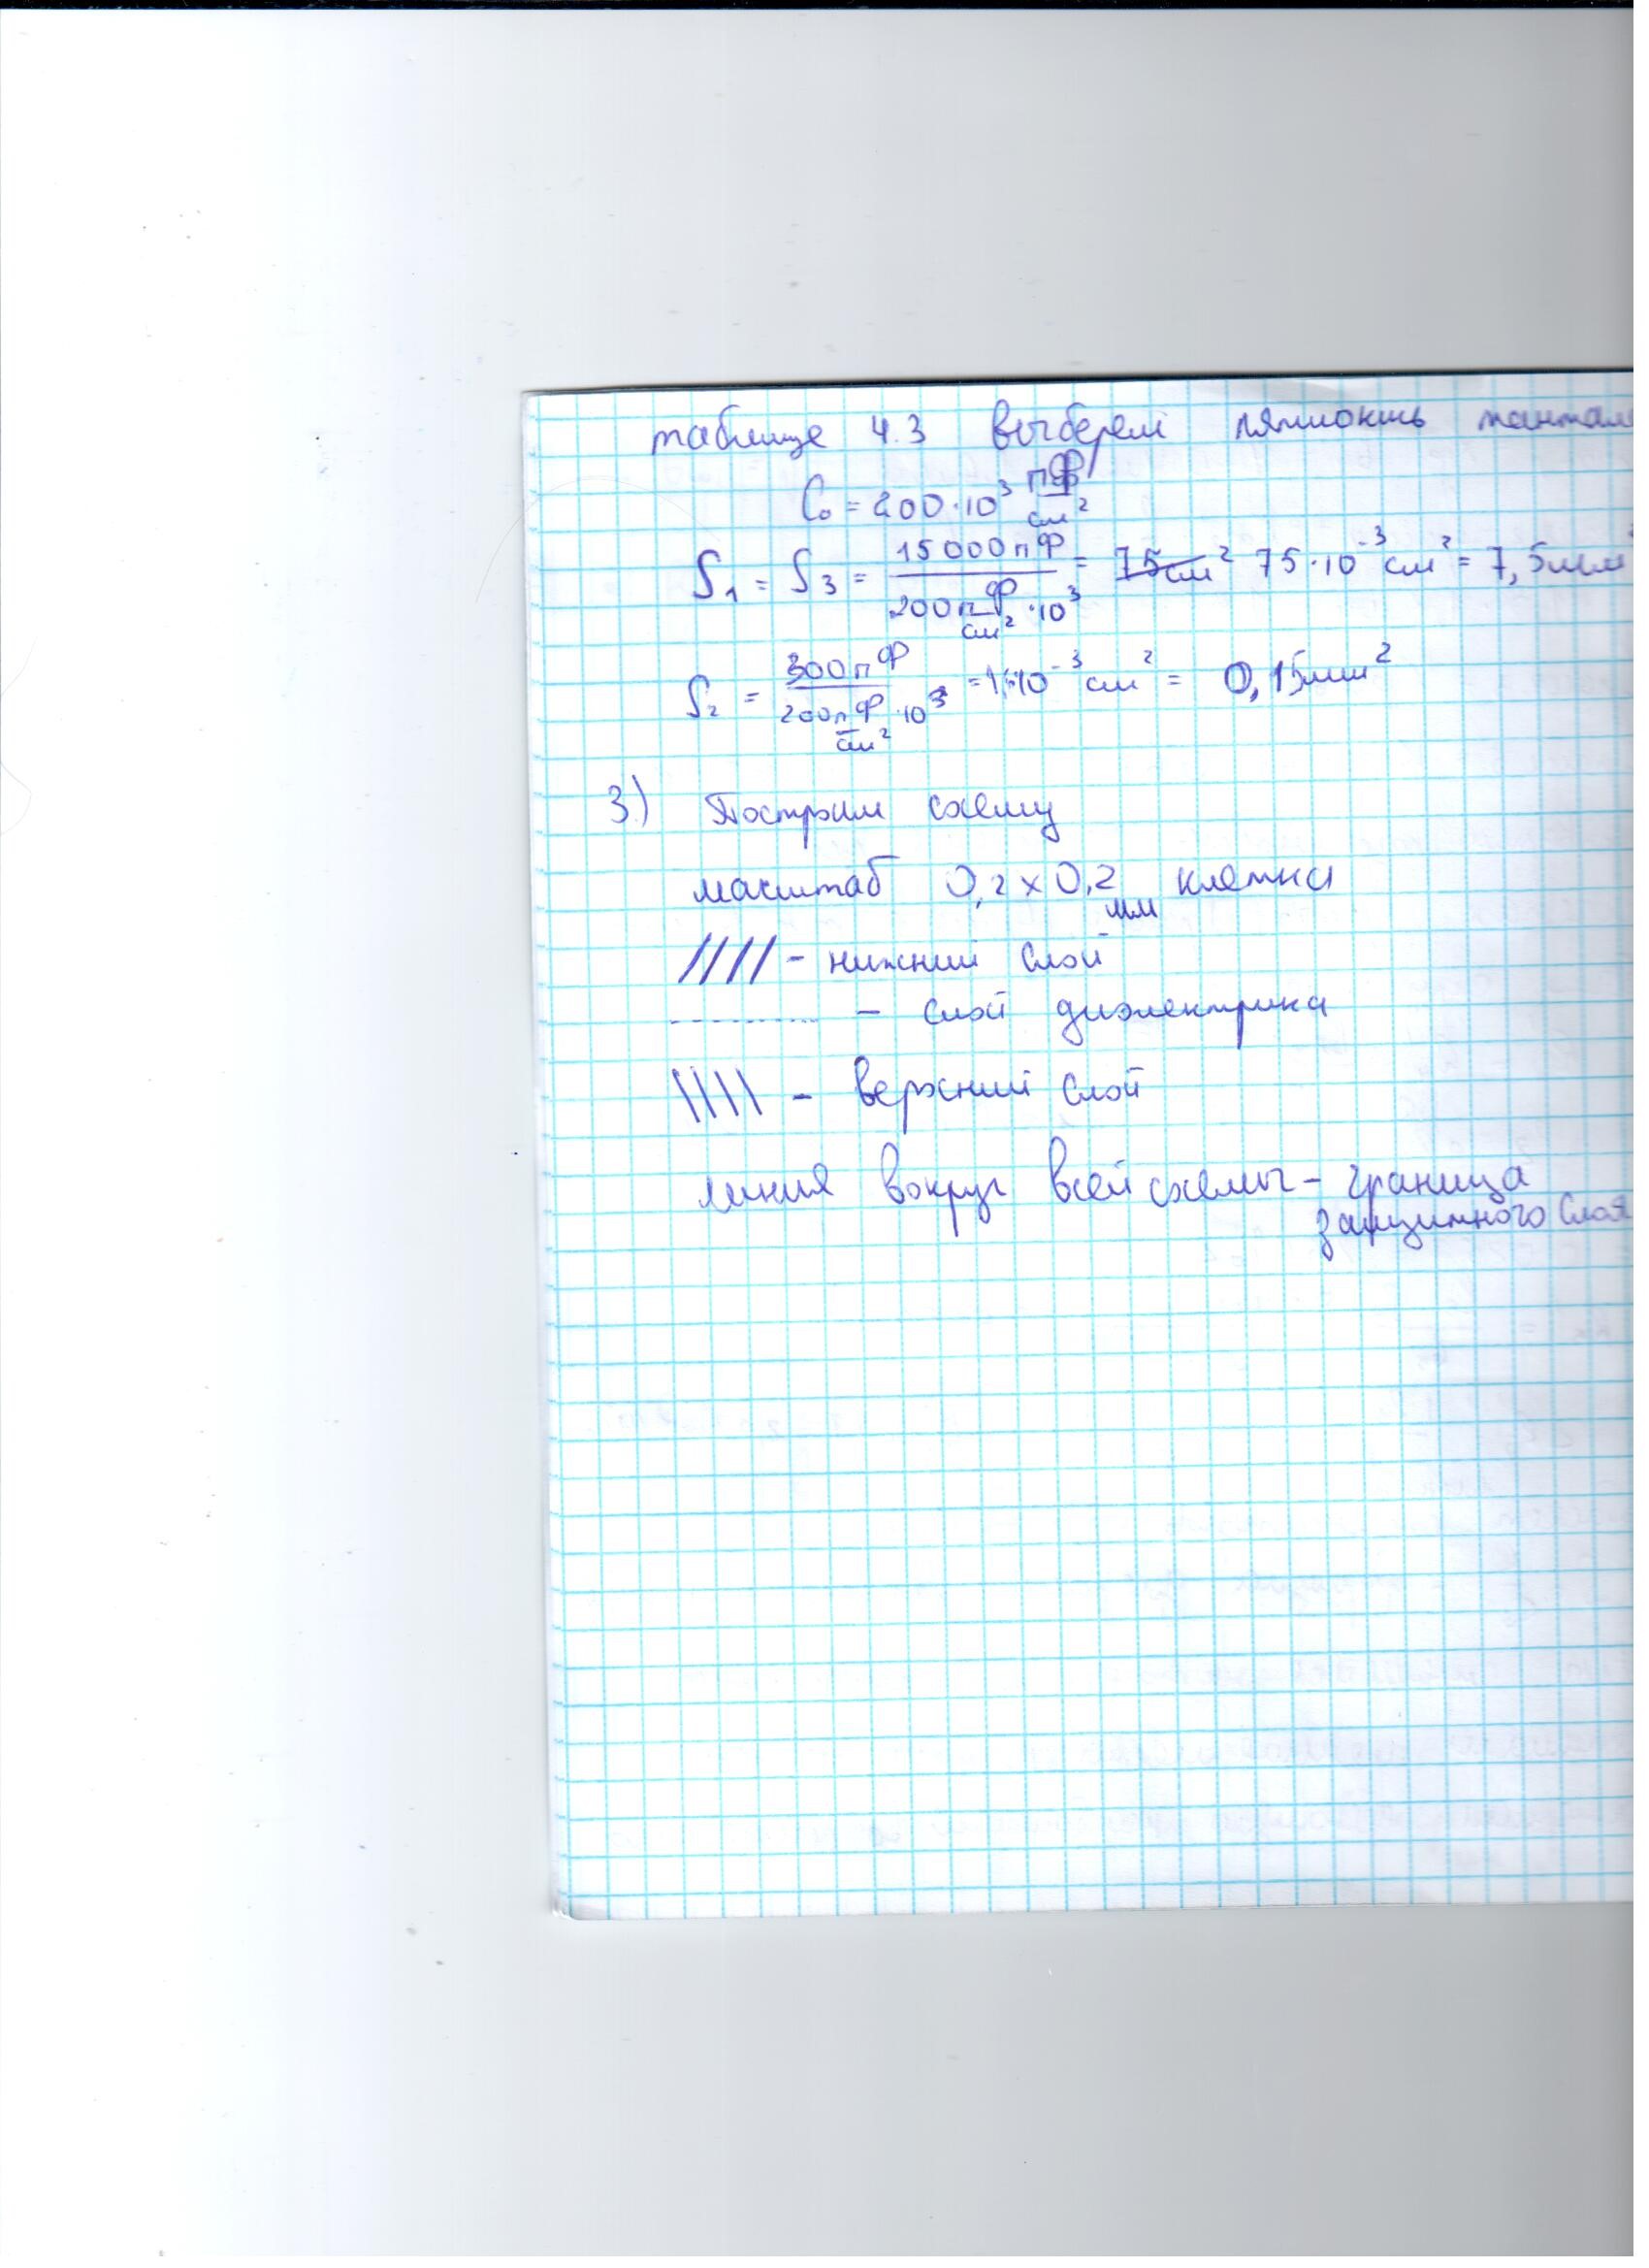 таблице 4.3 выберем пятиокись тантал
C₀ = 200·10³ пФ/см²
S₁ = S₃ = 15000пФ / 200пФ/см² ·10³ = 75см² 75·10⁻³ см² = 7,5мм
S₂ = 300пФ / 200пФ/см² ·10³ = 1,5·10⁻³ см² = 0,15мм²
3) Построим схему
масштаб 0,2 x 0,2 мм клетка
//// - нижний слой
.............. - слой диэлектрика
\\\\ - верхний слой
линия вокруг всей схемы - граница
защитного слоя